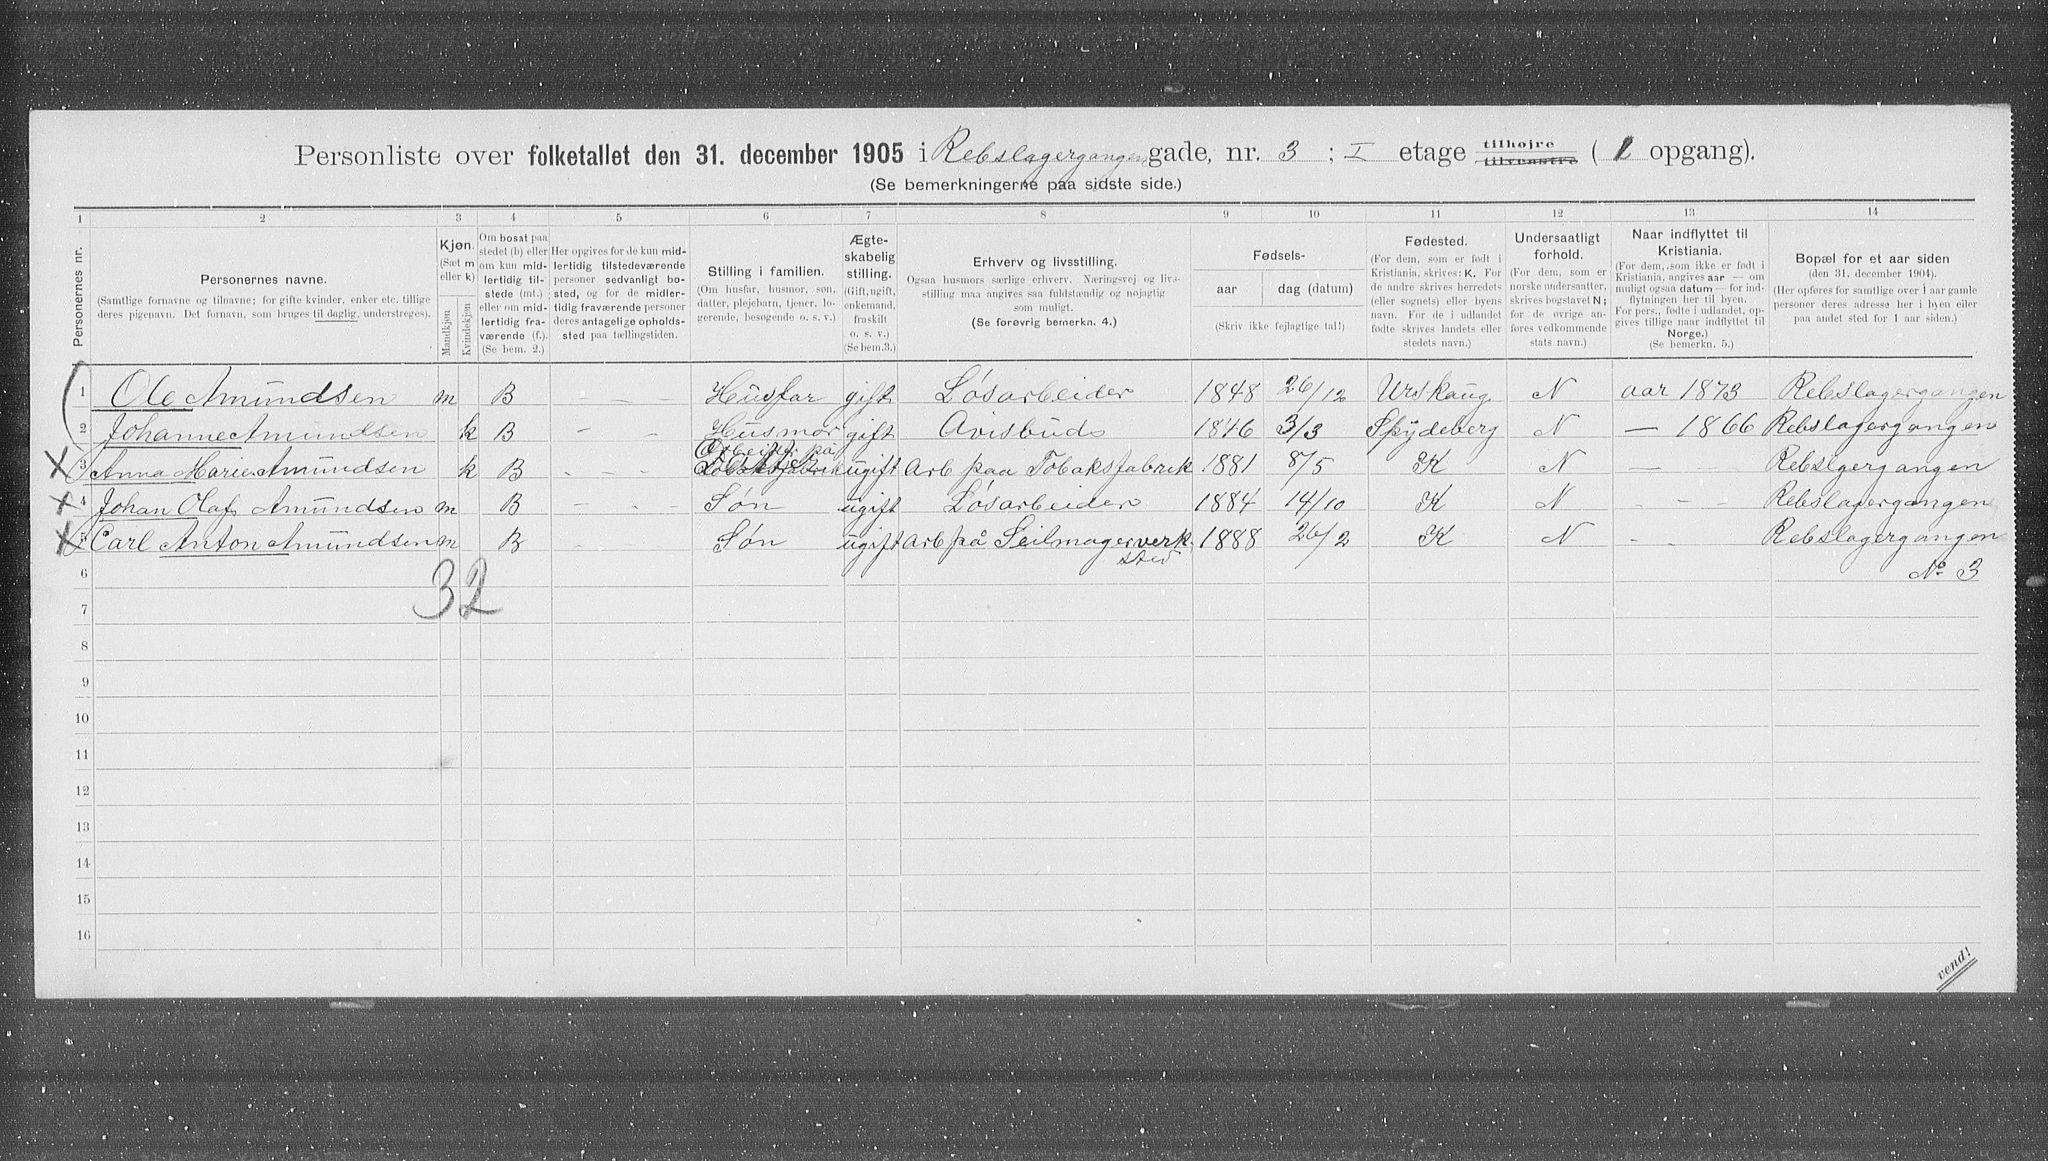 Personliste over folketallet den 31. december 1905 i Rebslagergangen gade, nr. 3 ; I etage tilhøjre tilvenstre ( 1 opgang).
(Se bemerkningerne paa sidste side.)
1 2 3 4 5 6 7 8 9 10 11 12 13 14
Personernes nr.
Personernes navne.
(Samtlige fornavne og tilnavne; for gifte kvinder, enker etc. tillige
deres pigenavn. Det fornavn, som bruges til daglig, understreges).
Kjøn.
(Sæt m
eller k)
Mandkjøn
Kvindekjøn
Om bosat paa
stedet (b) eller
om kun mid-
lertidig til-
stede (mt.)
eller om mid-
lertidig fra-
værende (f.).
(Se bem. 2.)
Her opgives for de kun mid-
lertidig tilstedeværende
personer sedvanlig bo-
sted, og for de midler-
tidig fraværende personer
deres antagelige opholds-
sted paa tællingstiden.
Stilling i familien.
(Om husfar, husmor, søn,
datter, plejebarn, tjener, lo-
gerende, besøgende o. s. v.)
Ægte-
skabelig
stilling.
(Gift, ugift,
enkemand,
fraskilt
o. s. v.)
(Se bem. 3.)
Erhverv og livsstilling.
Ogsaa husmors særlige erhverv. Næringsvej og livs-
stilling maa angives saa fuldstændig og nøjagtig
som muligt.
(Se forøvrig bemerkn. 4.)
Fødsels-
aar
dag (datum)
(Skriv ikke fejlagtige tal!)
Fødested.
(For dem, som er født i
Kristiania, skrives: K. For
de andre skrives herredets
(eller sognets) eller byens
navn. For de i udlandet
fødte skrives landets eller
stedets navn.)
Undersaatligt
forhold.
(For dem, som er
norske undersaatter,
skrives bogstavet N;
for de øvrige an-
føres vedkommende
stats navn.)
Naar indflyttet til
Kristiania.
(For dem, som ikke er født i
Kristiania, angives aar — om
muligt ogsaa datum — for ind-
flytningen her til byen.
For pers., fødte i udlandet, op-
gives tillige naar indflyttet til
Norge.)
(Se bemerkn. 5.)
Bopæl for et aar siden
(den 31. december 1904).
(Her opføres for samtlige over 1 aar gamle
personer deres adresse her i byen eller
paa andet sted for 1 aar siden.)
1 Ole Amundsen m B - - - Husfar gift Løsarbeider 1848 26/12 Urskaug N aar 1873 Rebslagergangen
2 Johanne Amundsen k B - - Husmor gift Avisbud 1846 3/3 Spydeberg N — 1866 Rebslagergangen
Arbeider på
X 3 Anna Marie Amundsen k B - - - Tobaksfabrik ugift Arb paa Tobaksfabrik 1881 8/5 K N - - Rebslgergangen
X 4 Johan Olaf Amundsen m B - - - Søn ugift Løsarbeider 1884 14/10 K N - - Rebslagergangen
X 5 Carl Anton Amundsen m B - - Søn ugift Arb på Seilmagerverk 1888 26/2 K N - - Rebslagergangen
sted
6 No 3
32
7
8
9
10
11
12
13
14
15
16
vend!